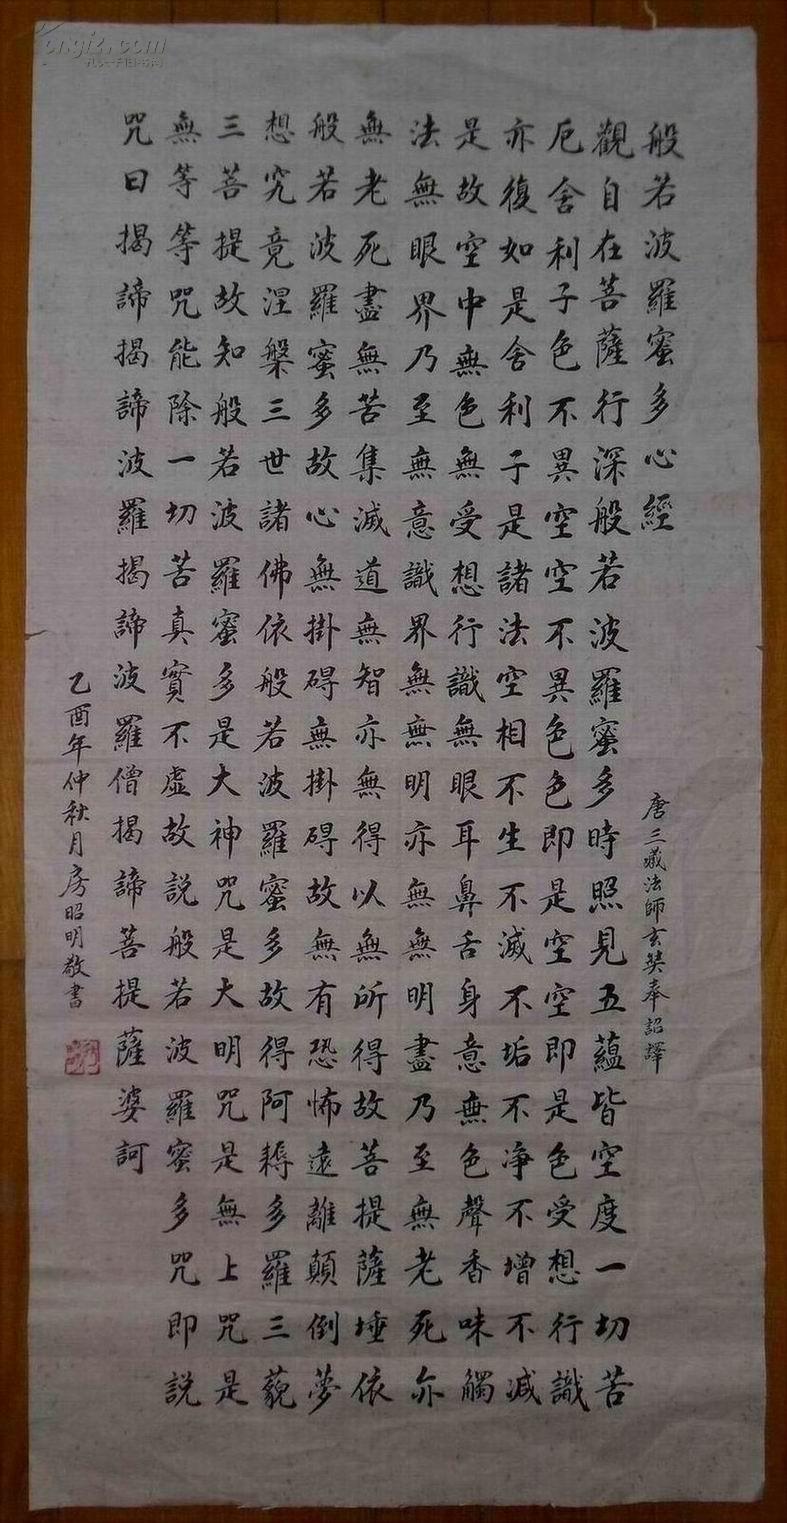 般若波羅蜜多心經
唐三藏法師玄奘奉詔譯
觀自在菩薩行深般若波羅蜜多時照見五蘊皆空度一切苦
厄舍利子色不異空空不異色色即是空空即是色受想行識
亦復如是舍利子是諸法空相不生不滅不垢不淨不增不減
是故空中無色無受想行識無眼耳鼻舌身意無色聲香味觸
法無眼界乃至無意識界無無明亦無無明盡乃至無老死亦
無老死盡無苦集滅道無智亦無得以無所得故菩提薩埵依
般若波羅蜜多故心無掛碍無掛碍故無有恐怖遠離顛倒夢
想究竟涅槃三世諸佛依般若波羅蜜多故得阿耨多羅三藐
三菩提故知般若波羅蜜多是大神咒是大明咒是無上咒是
無等等咒能除一切苦真實不虛故説般若波羅蜜多咒即説
咒曰揭諦揭諦波羅揭諦波羅僧揭諦菩提薩婆訶
乙酉年仲秋月房昭明敬書